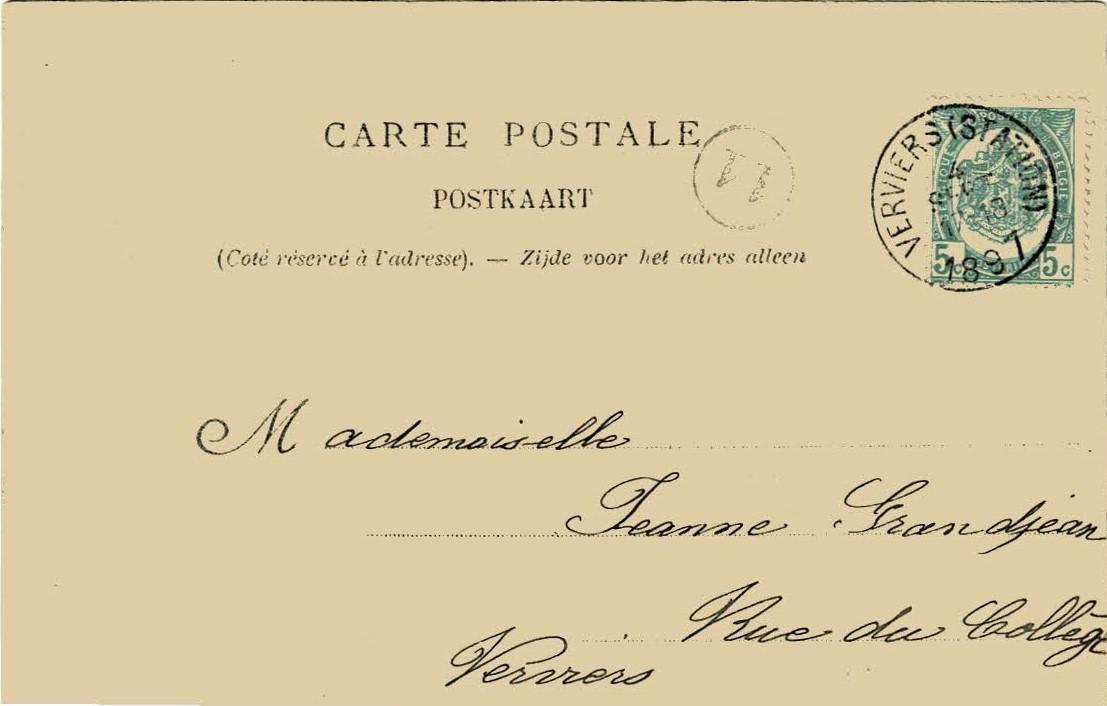 CARTE POSTALE
POSTKAART
(Coté réservé à l'adresse). — Zijde voor het adres alleen
11
VERVIERS (STATION)
1897
POSTES
BELGIQUE
BELGIE
5c 5c
Mademoiselle
Jeanne Grandjean
Rue du Collège
Verviers